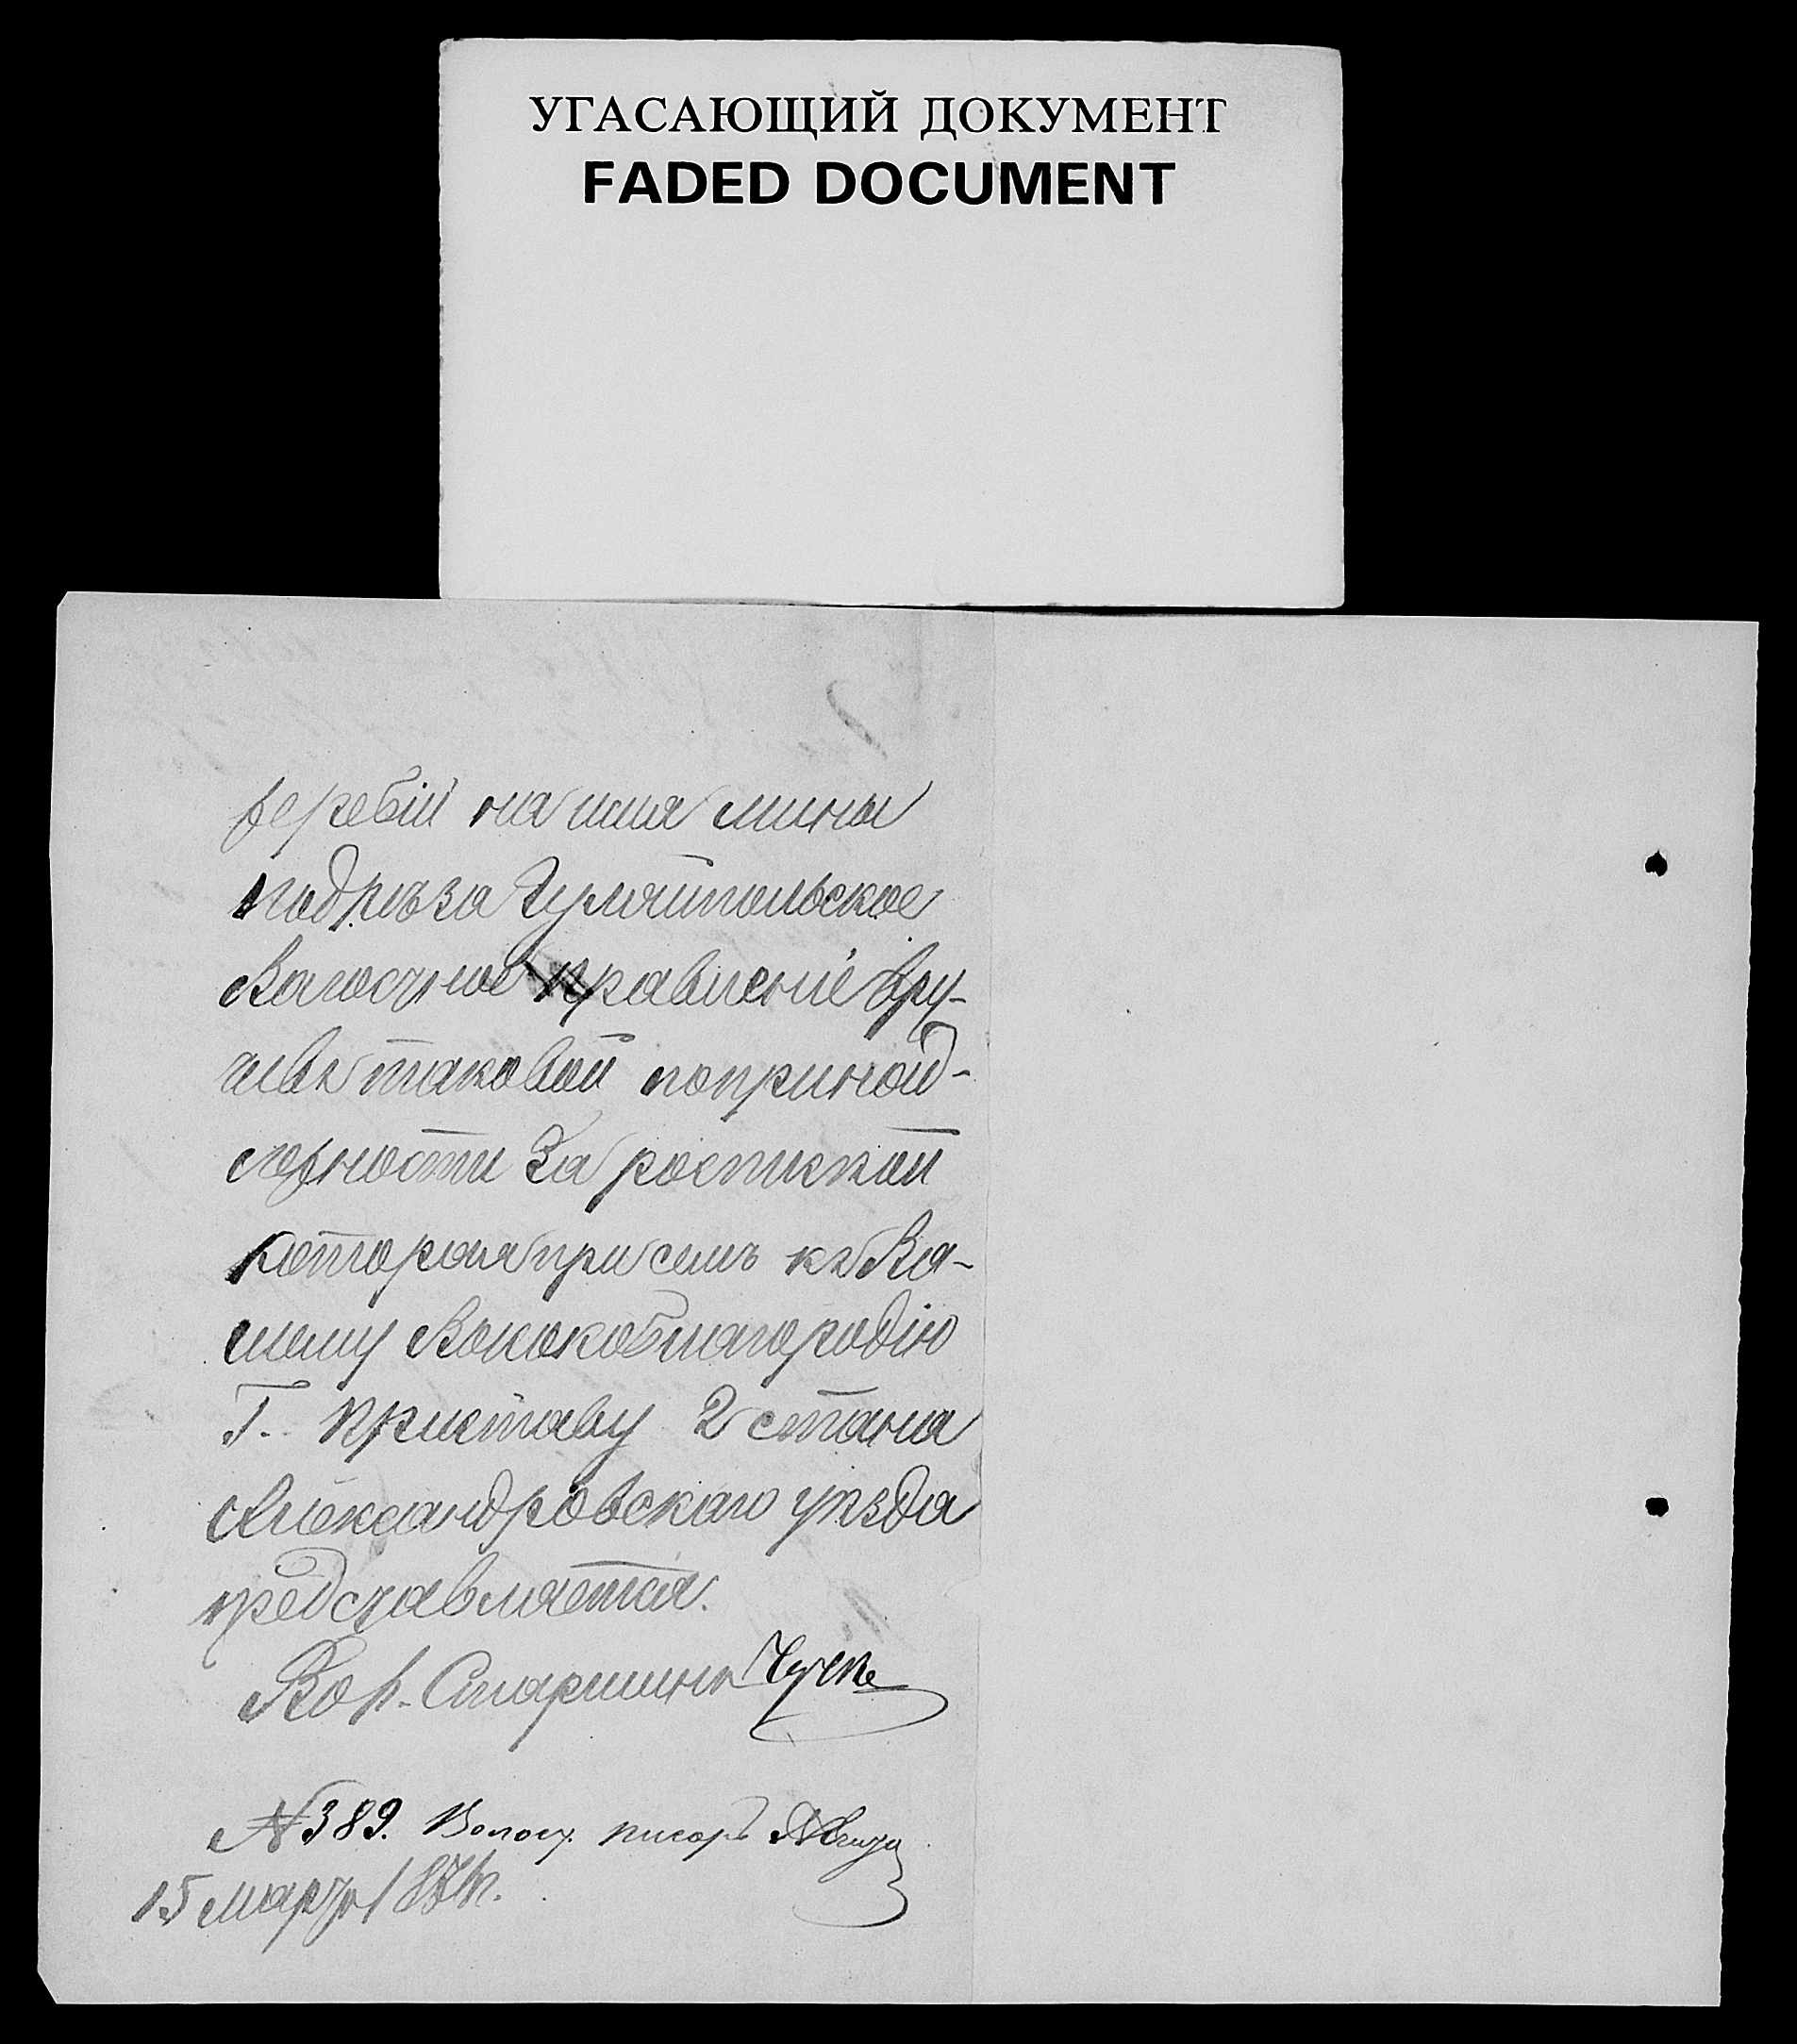 УГАСАЮЩИЙ ДОКУМЕНТ
FADED DOCUMENT
жеребій на имя мины
подрѣза Гуляйпольское
Волостное правленіе вру-
чивъ таковой попринад-
лежности за роспиской
которая при семъ къ Ва-
шему Высокоблагородію
Г. Приставу 2 стана
Александровскаго уѣзда
представляется.
Вол. Старшина
№ 389. Волост. писарь
15 марта 187